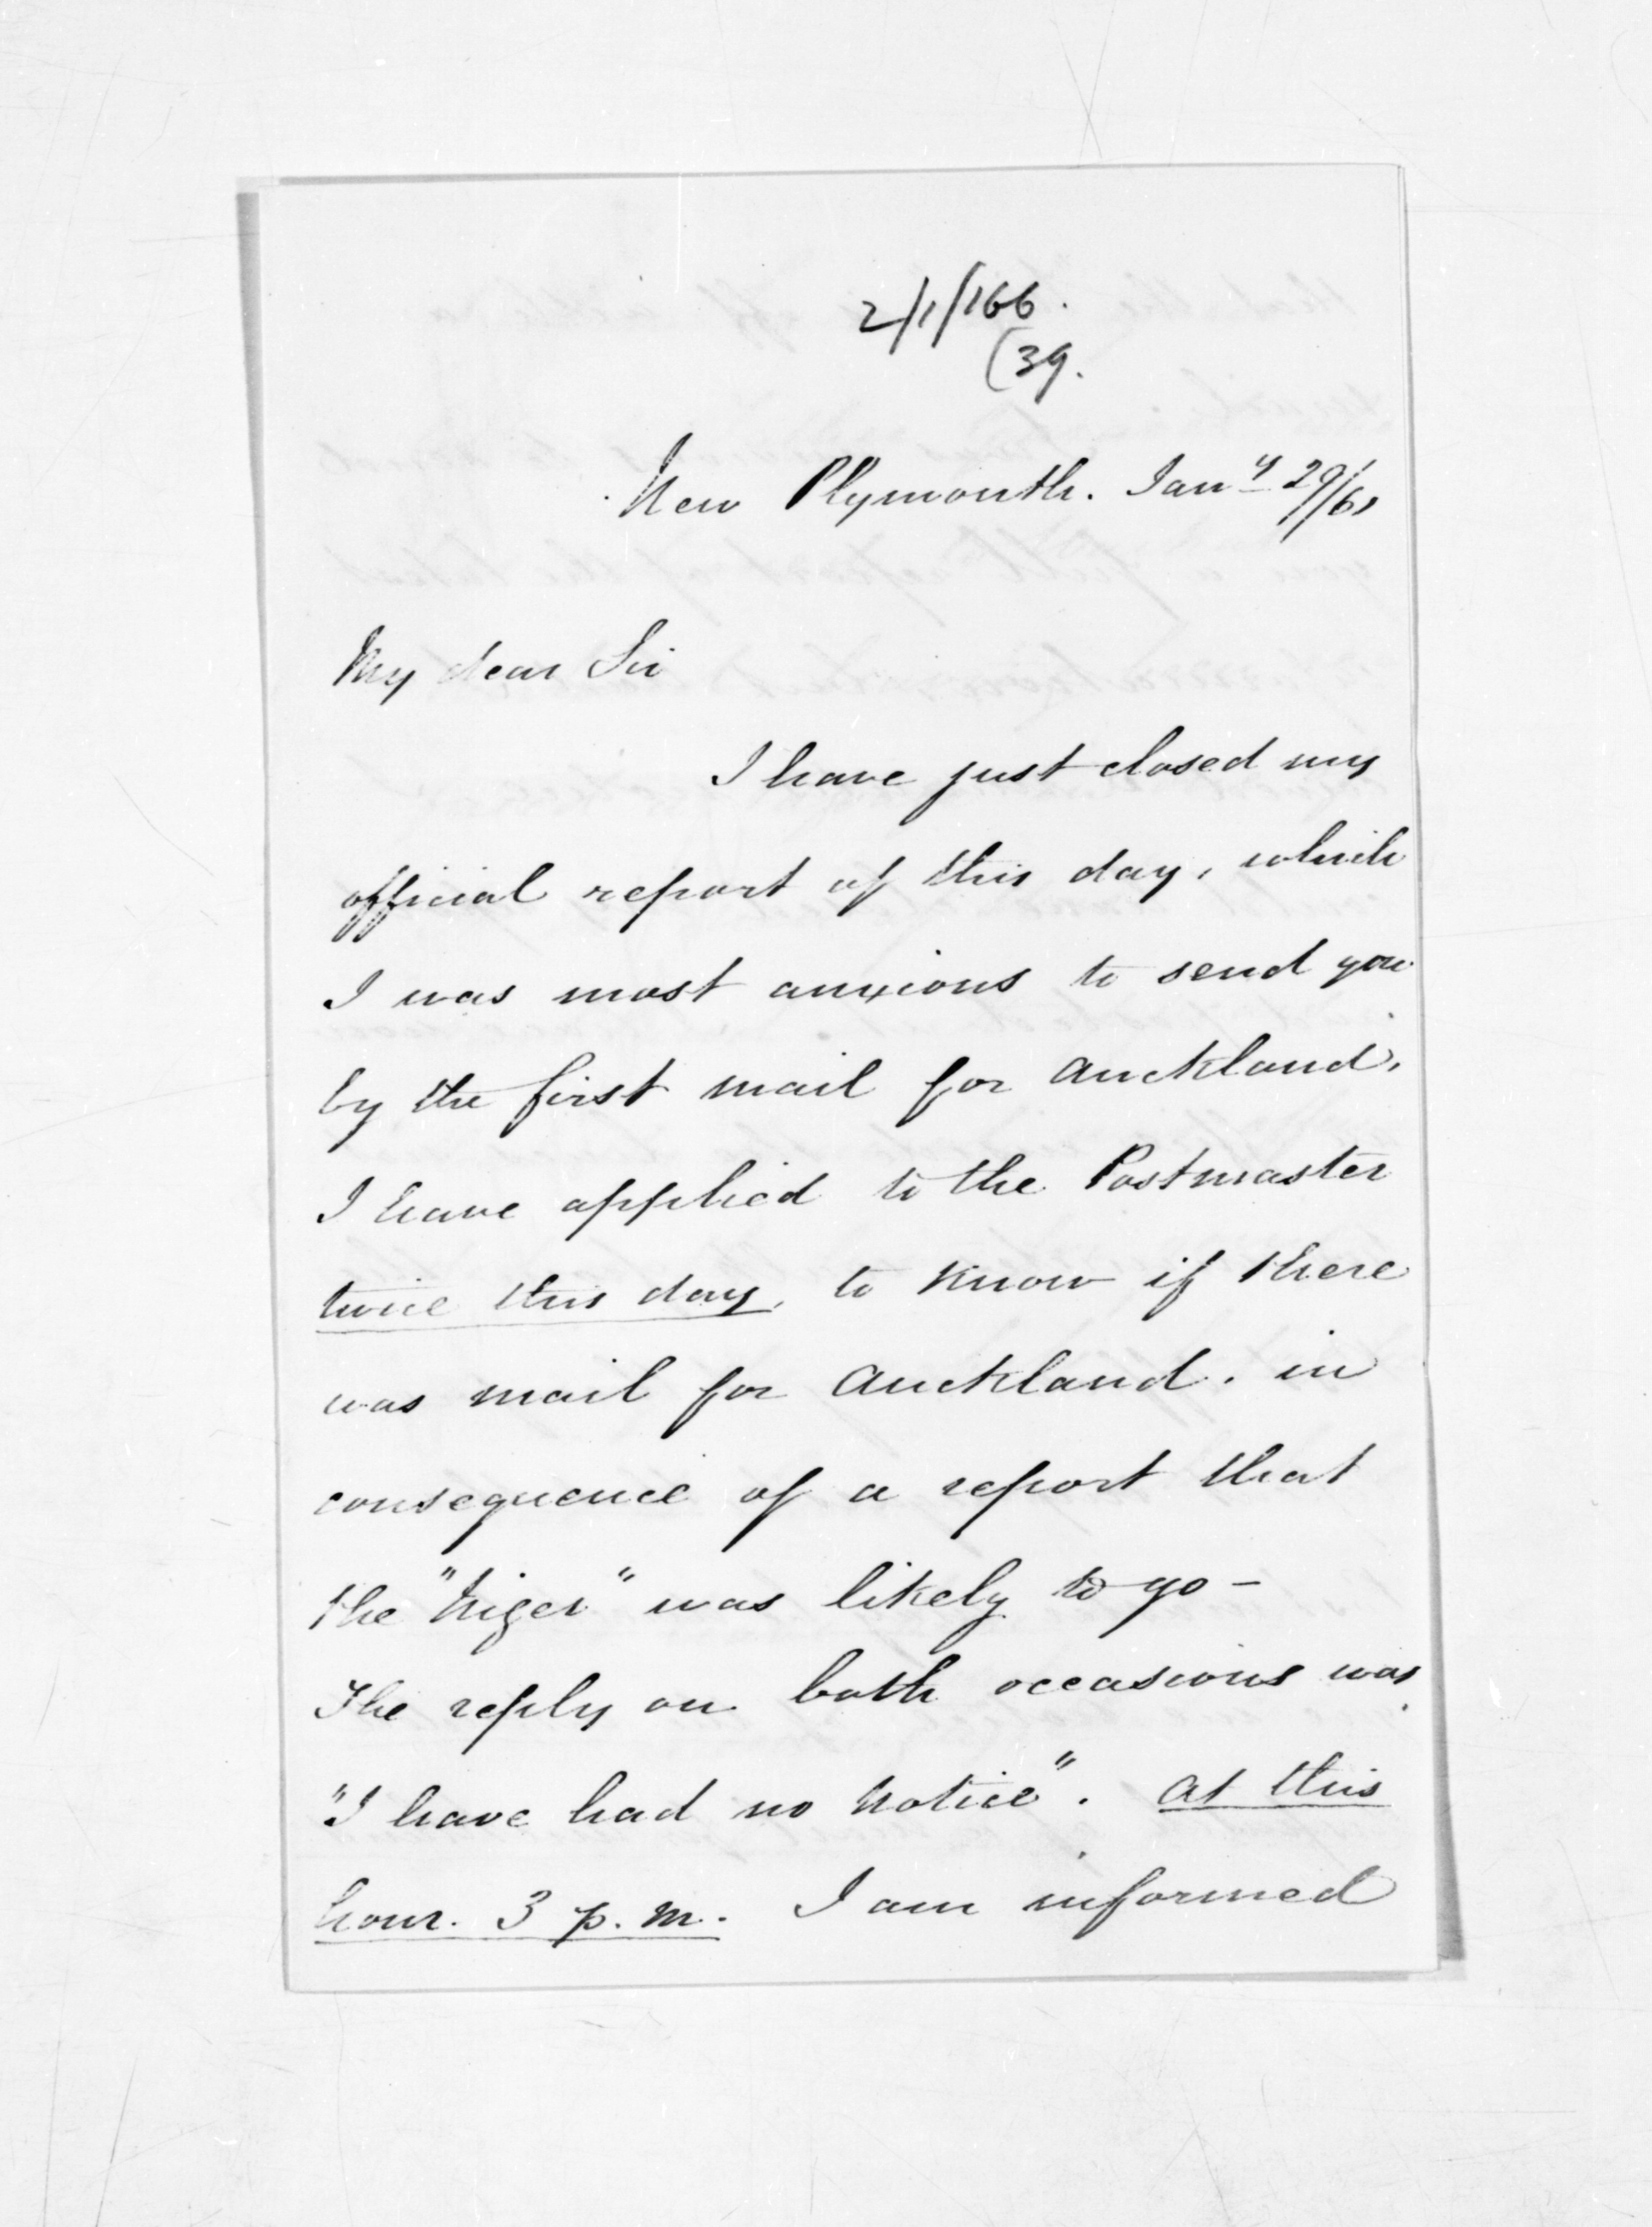 2/1/166.
(39.
New Plymouth. Jany 29/61
My dear Sir
I have just closed my
official report of this day, which
I was most anxious to send you
by the first mail for Auckland.
I have applied to the Postmaster
twice this day, to know if there
was mail for Auckland. in
consequence of a report that
the "Niger" was likely to go -
The reply on both occasions was,
"I have had no notice". At this
hour. 3 p.m. I am informed